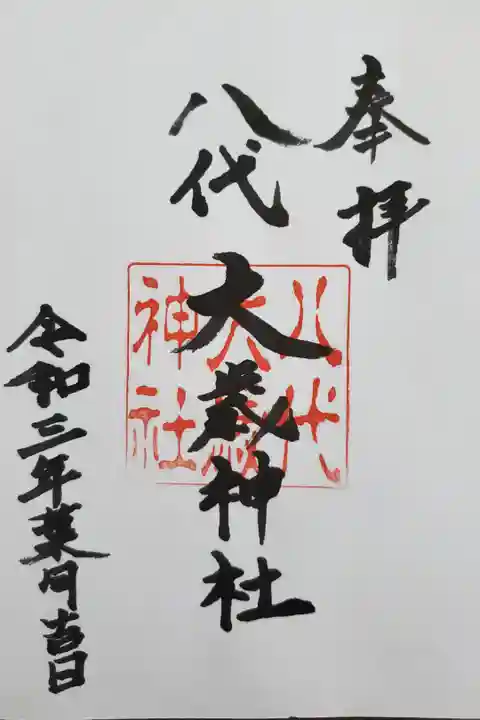 奉拝
八代
大歳神社
八代
大歳
神社
令和三年葉月吉日